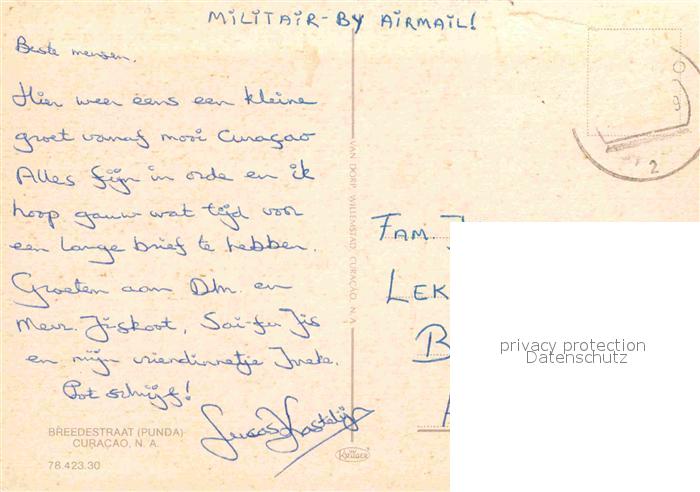 MILITAIR - BY AIRMAIL!
Beste mensen,
Hier weer eens een kleine
groet vanaf mooi Curaçao
Alles fijn in orde en ik
hoop gauw wat tijd voor
een lange brief te hebben.
Groeten aan Dhr. en
Mevr. Jiskoot,
en mijn vriendinnetje Ineke.
Pot schijf!
BREEDESTRAAT (PUNDA)
CURAÇAO, N. A.
78.423.30
VAN DORP WILLEMSTAD, CURAÇAO, N. A.
Krüger
2
FAM. J
LEK
B
privacy protection
Datenschutz